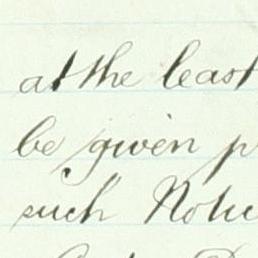 at the least
be given p
such Notic